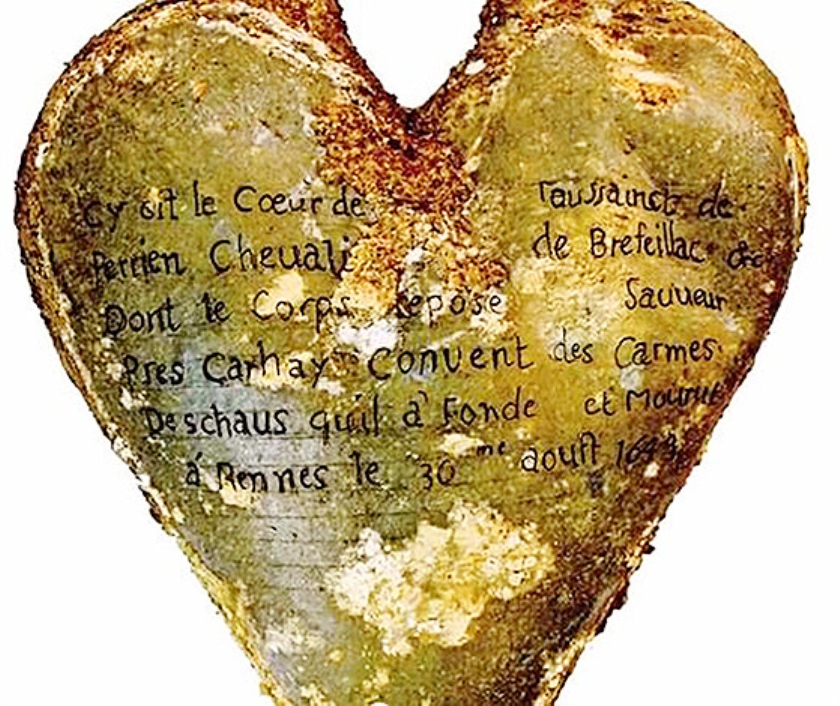 Cy git le Cœur de Toussainct de
Perrien Cheuali de Brefeillac &c
Dont le Corps repose Sauueur
Pres Carhay Conuent des Carmes
Deschaus quil á Fonde et Mourut
á Rennes le 30me aoust 1649